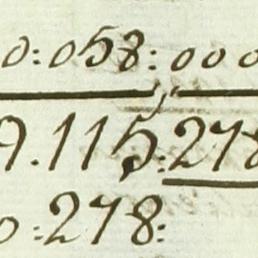 0:058:000
9.115:278
0:278: